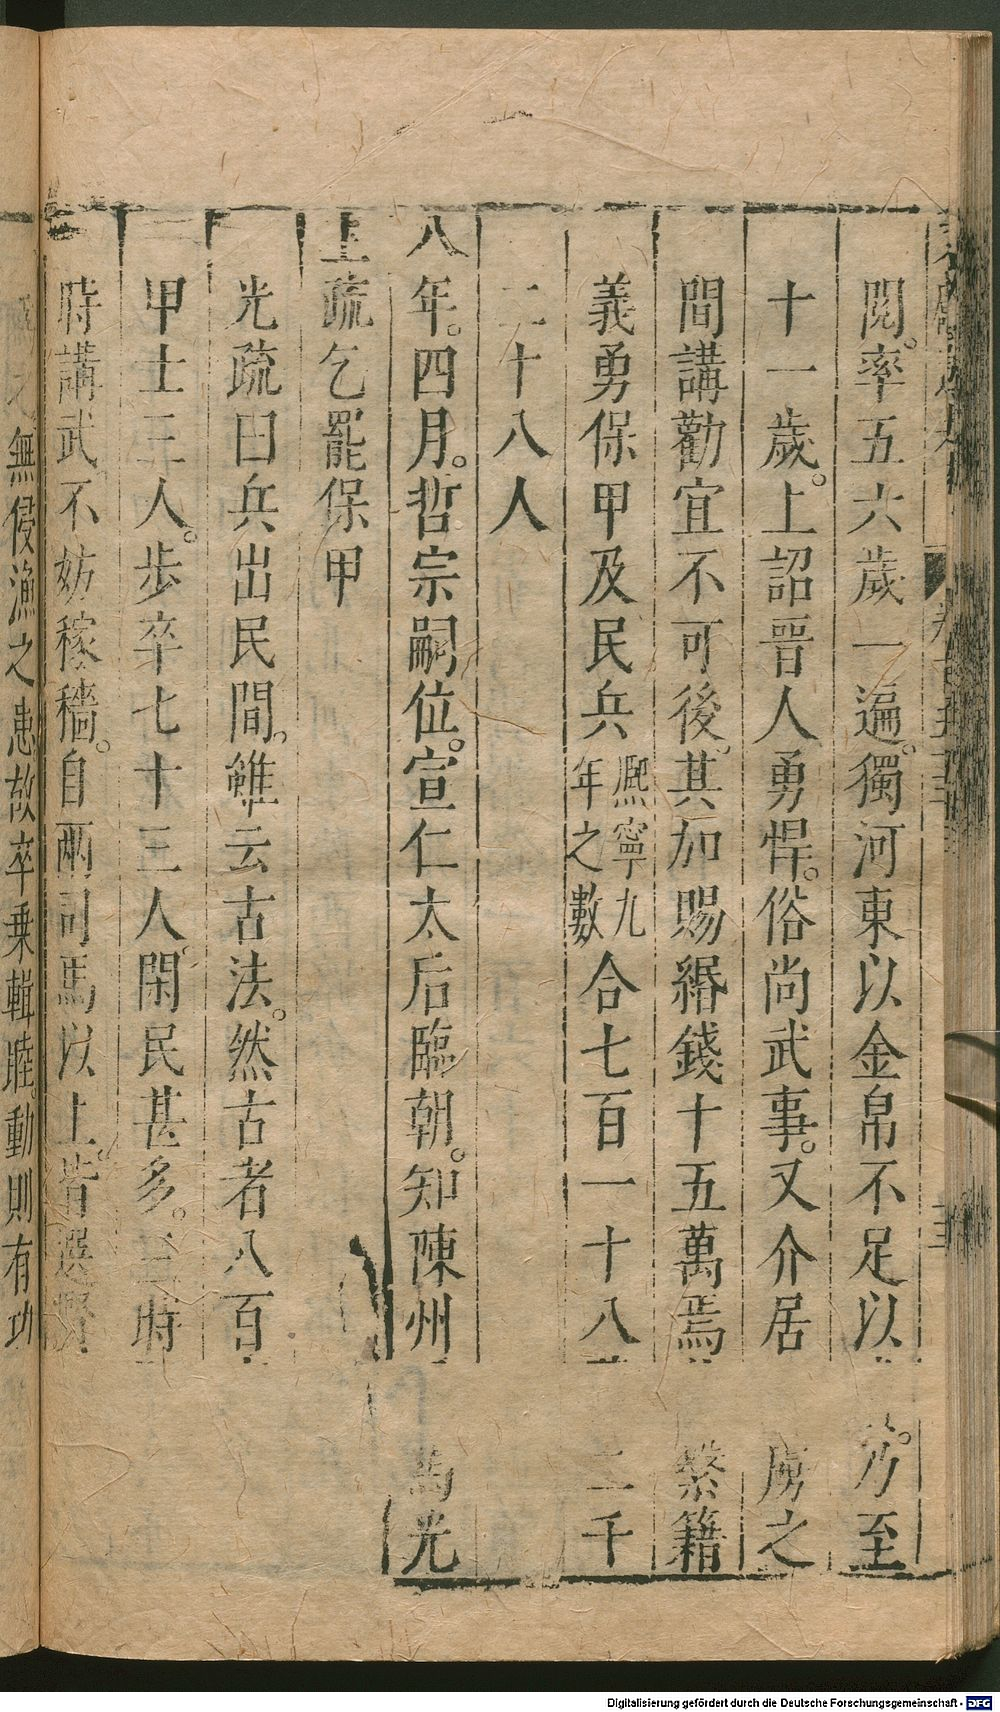 閱。率五六歲一遍。獨河東以金帛不足以 乃至
十一歲。上詔晉人勇悍。俗尚武事。又介居 虜之
間講勸宜不可後。其加賜緡錢十五萬焉 繫籍
義勇保甲及民兵熙寧九年之數合七百一十八 二千
二十八人
八年。四月。哲宗嗣位。宣仁太后臨朝。知陳州 馬光
上疏乞罷保甲
光疏曰兵出民間。雖云古法。然古者八百
甲士三人。步卒七十二人。閑民甚多。三時
時講武不妨稼穡。自兩司馬以上。皆選賢
無侵漁之患故卒乗輯睦。動則有功
Digitalisierung gefördert durch die Deutsche Forschungsgemeinschaft - DFG